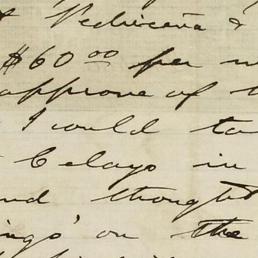 Pedriceña &
$60 00 per m
approve of t
I would ta
Celayo in
nd thought
ings' on the